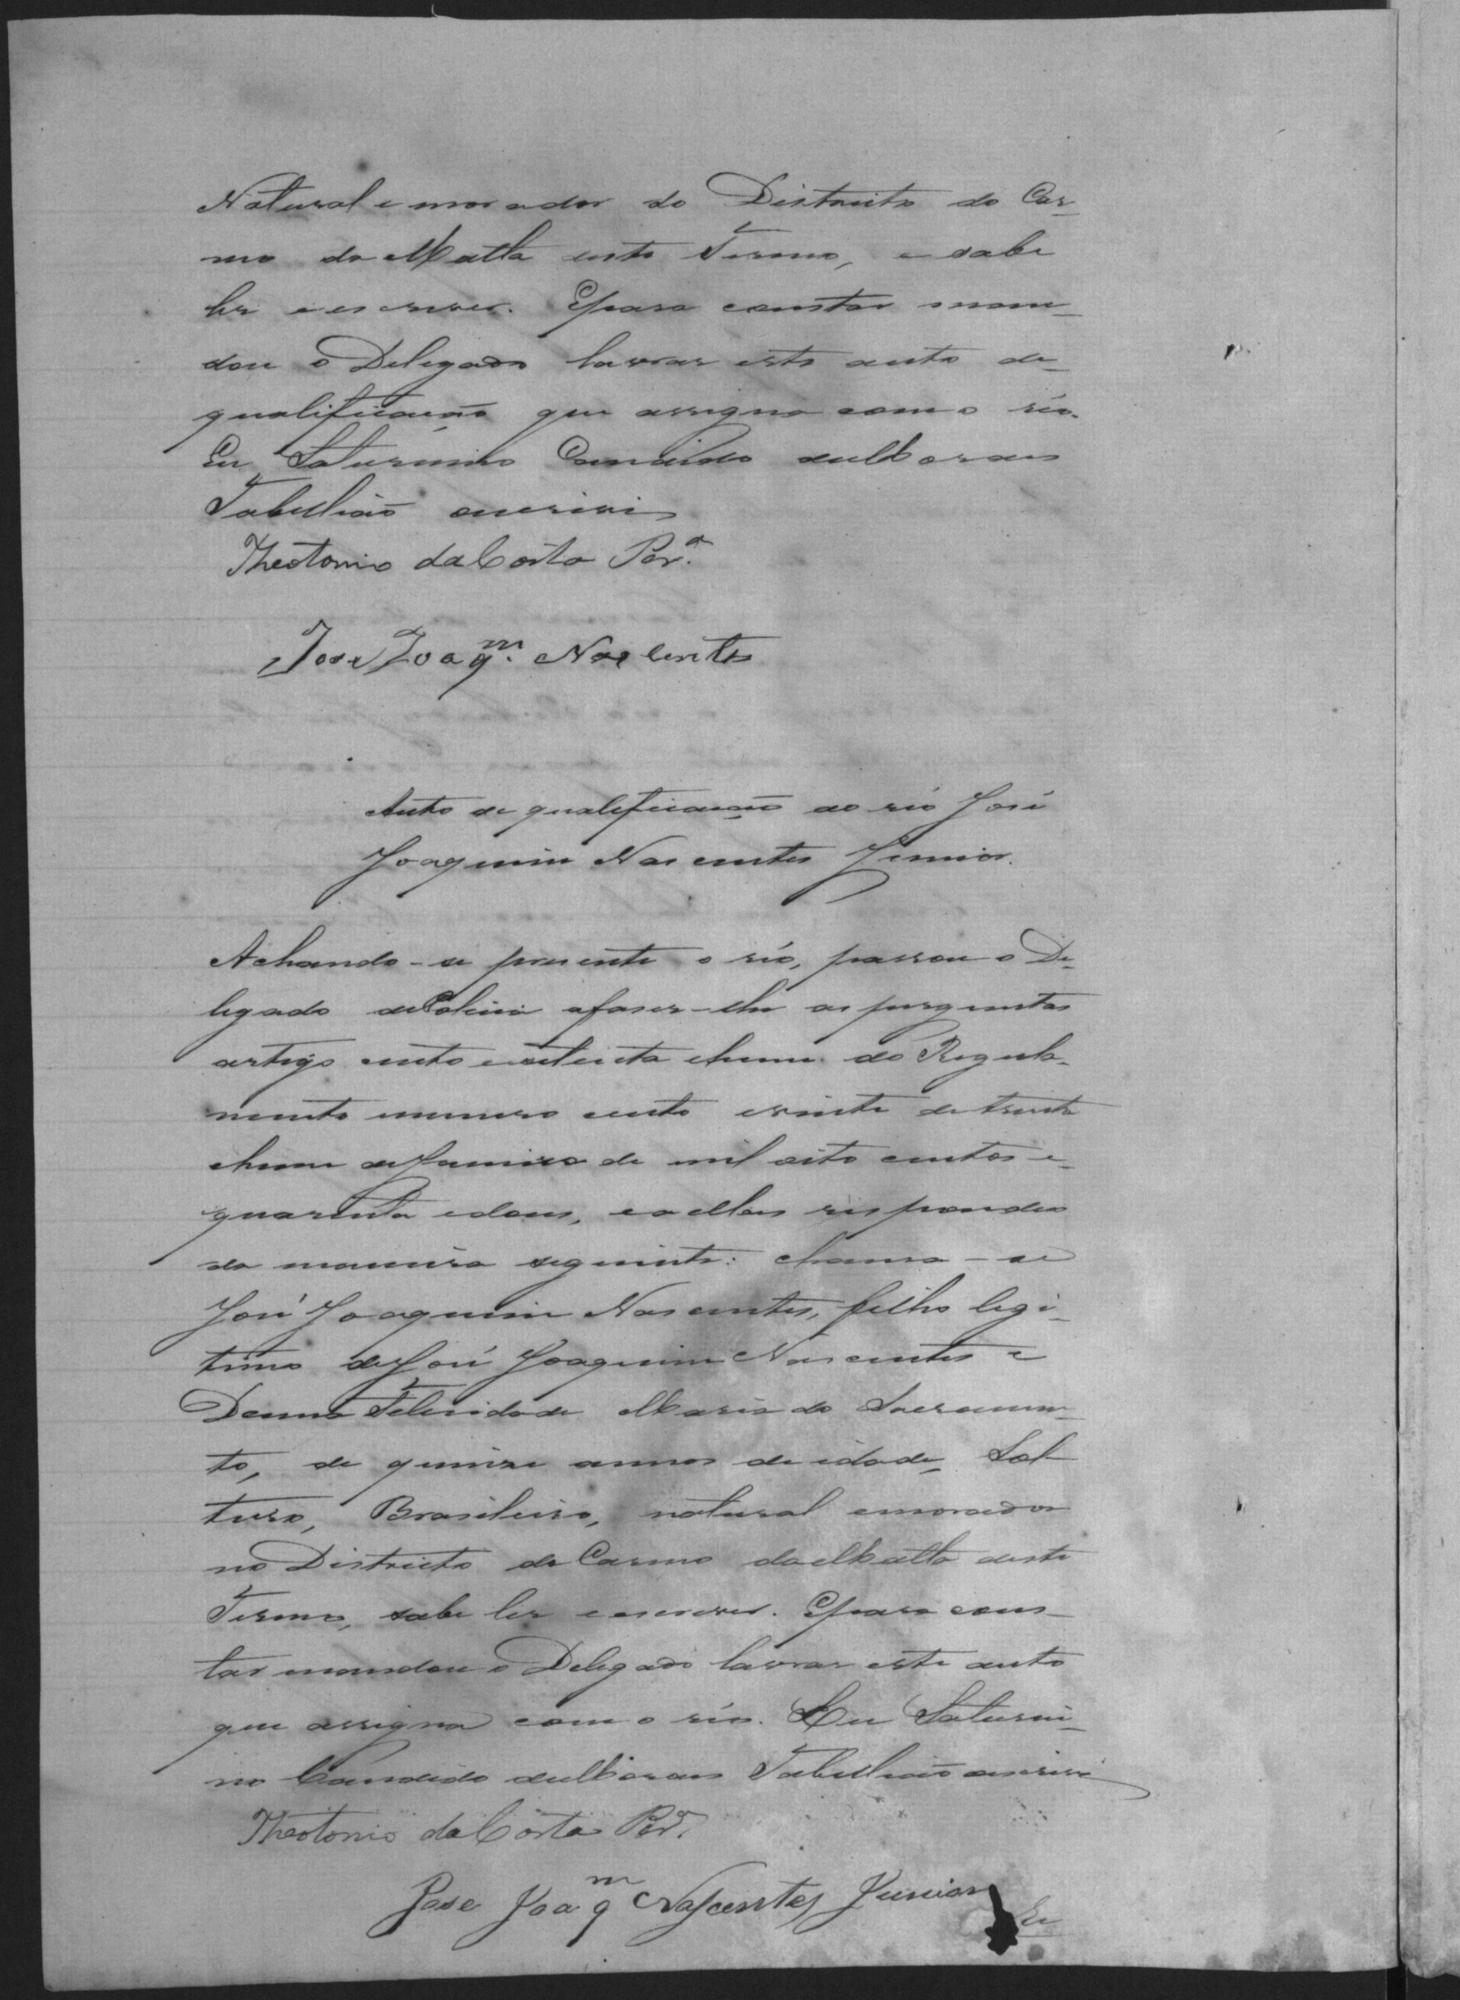 Natural e morador do Districto do Car-
mo da Matta deste Termo, e sabe
ler e escrever. E para constar man-
dou o Delegado lavrar este auto de
qualificação que assigna com o réo.
Eu Saturnino Candido de Moraes
Tabellião escrivi
Theotonio da Costa Per.ª
Jose Joaq.m Nascentes
Auto de qualificação ao réo José
Joaquim Nascentes Junior.
Achando-se presente o réo, passou o De-
legado de Policia a faser-lhe as perguntas
artigo cento e setenta e hum do Regula-
mento numero cento e vinte de trinta
e hum de Janeiro de mil oito centos e
quarenta e dous, e a ellas respondeo
da maneira seguinte: chama-se
José Joaquim Nascentes, filho legi-
timo de José Joaquim Nascentes e
Donna Felicidade Maria do Sacramen-
to, de quinze annos de idade, Sol-
teiro, Brasileiro, natural e morador
no Districto do Carmo da Matta deste
Termo, sabe ler e escrever. E para cons-
tar mandou o Delegado lavrar este auto
que assigna com o réo. Eu Saturni-
no Candido de Moraes Tabellião escrivi
Theotonio da Costa Per.ª
Jose Joaq.m Nascentes Junior